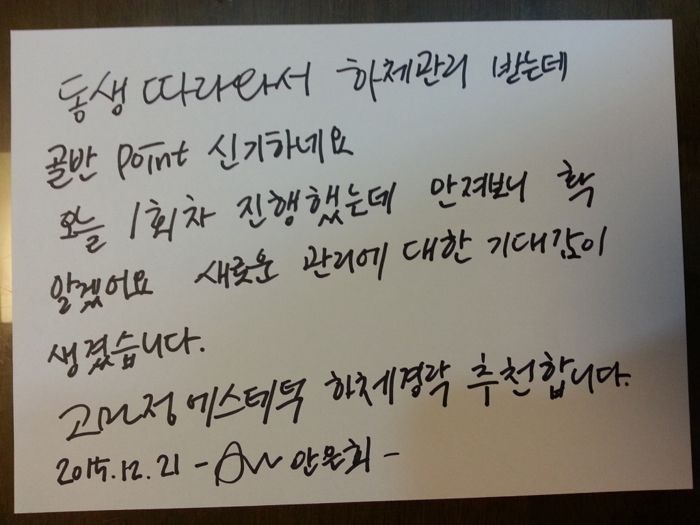 동생 따라와서 하체관리 받는데
골반 point 신기하네요
오늘 1회차 진행했는데 만져보니 확
알겠어요 새로운 관리에 대한 기대감이
생겼습니다.
고미정에스테틱 하체경락 추천합니다.
2015.12.21 -